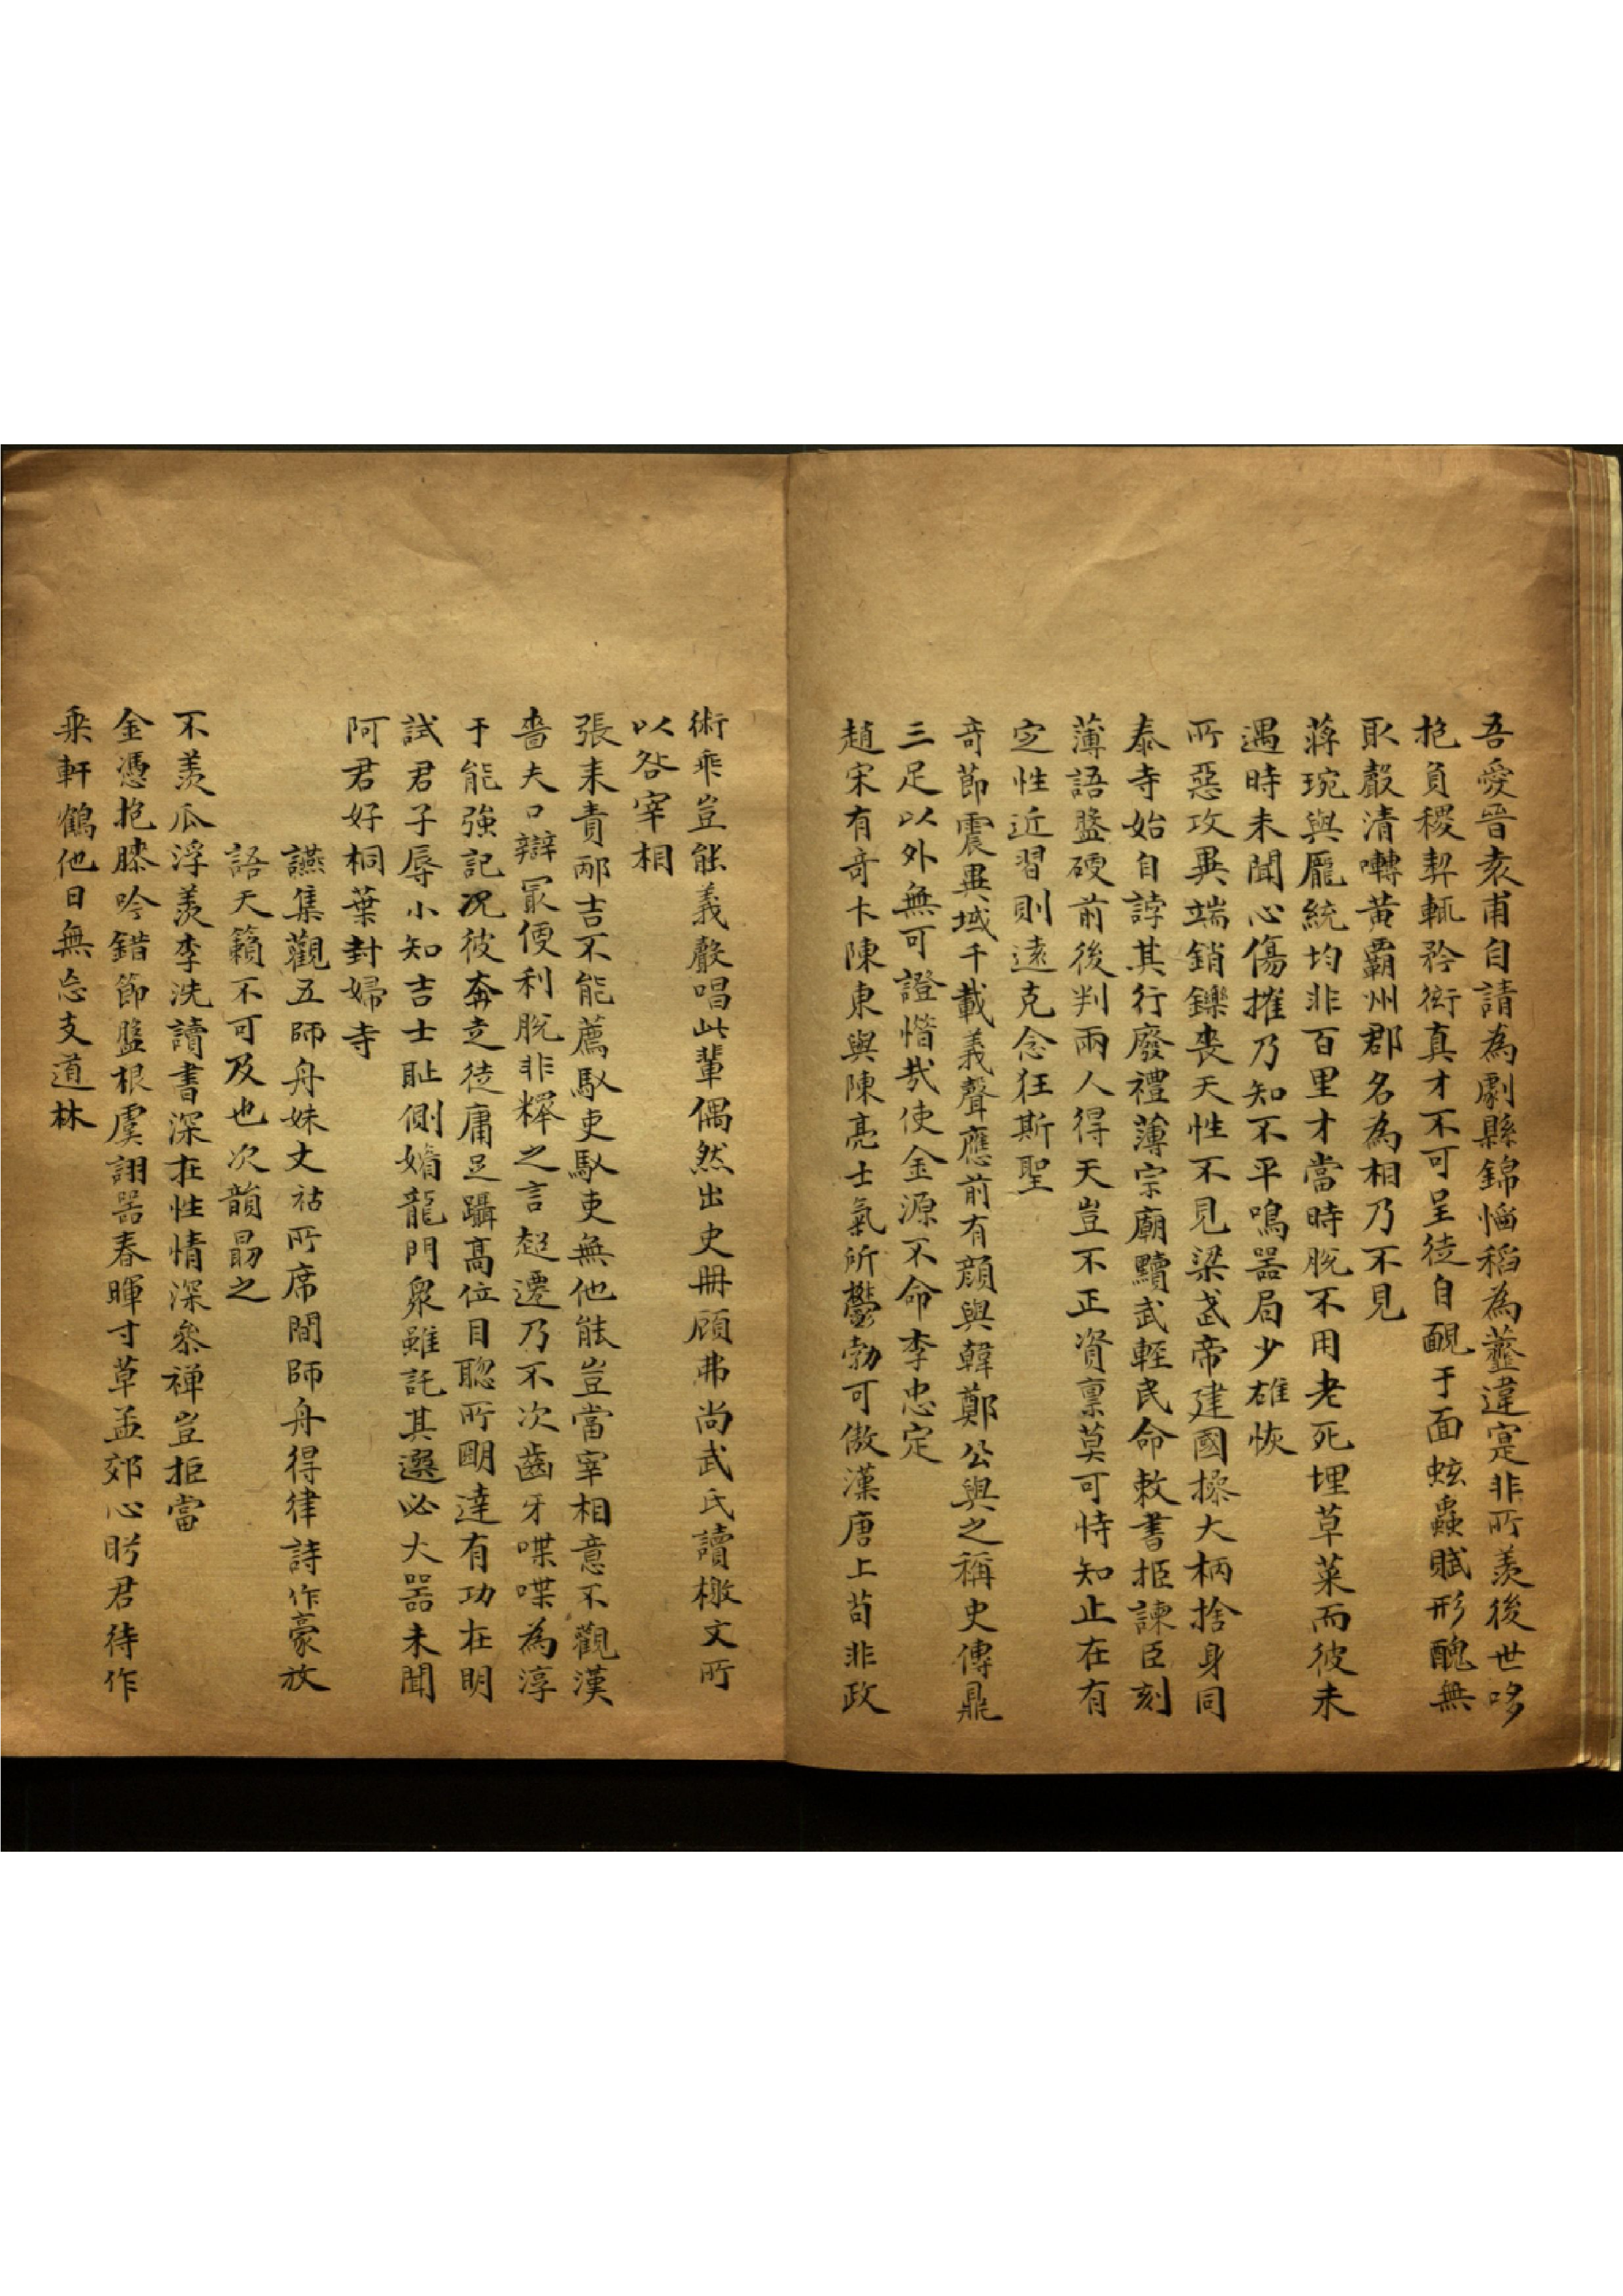 吾愛晉袁甫自請為劇縣錦惱稻為虀違寔非所羨後世哆
抱負稷契輒矜衒真才不可呈徒自靦于面蚿蟲賦形醜無
取嚴清囀黃霸州郡名為相乃不見
蔣琬與龐統均非百里才當時脫不用老死埋草菜而彼未
遇時未聞心傷摧乃知不平鳴器局少雄恢
所惡攻異端銷鑠喪天性不見梁武帝建國操大柄捨身同
泰寺始自誖其行廢禮薄宗廟黷武輕民命敕書拒諫臣刻
薄語盭硬前後判兩人得天豈不正資稟莫可恃知止在有
定性近習則遠克念狂斯聖
奇節震異域千載義聲應前有顏與韓鄭公與之稱史傳鼎
三足以外無可證惜哉使金源不命李忠定
趙宋有奇士陳東與陳亮士氣所鬱勃可傲漢唐上苟非政
術乖豈能義聲唱此輩偶然出史冊顧弗尚武氏讀檄文所
以咎宰相
張耒責邴吉不能薦馭吏馭吏無他能豈當宰相意不觀漢
嗇夫口辯冣便利脫非釋之言超遷乃不次齒牙喋喋為淳
于能強記况彼奔走徒庸足躡高位目聰所明達有功在明
試君子辱小知吉士恥側媚龍門衆雖託其選必大器未聞
阿君好桐葉封婦寺
讌集觀五師舟妹丈祜所席間師舟得律詩作豪放
語天籟不可及也次韻勗之
不羨瓜浮羨李洗讀書深在性情深參禪豈拒當
金憑抱膝吟錯節盤根虞詡器春暉寸草孟郊心盻君待作
乘軒鶴他日無忘支道林